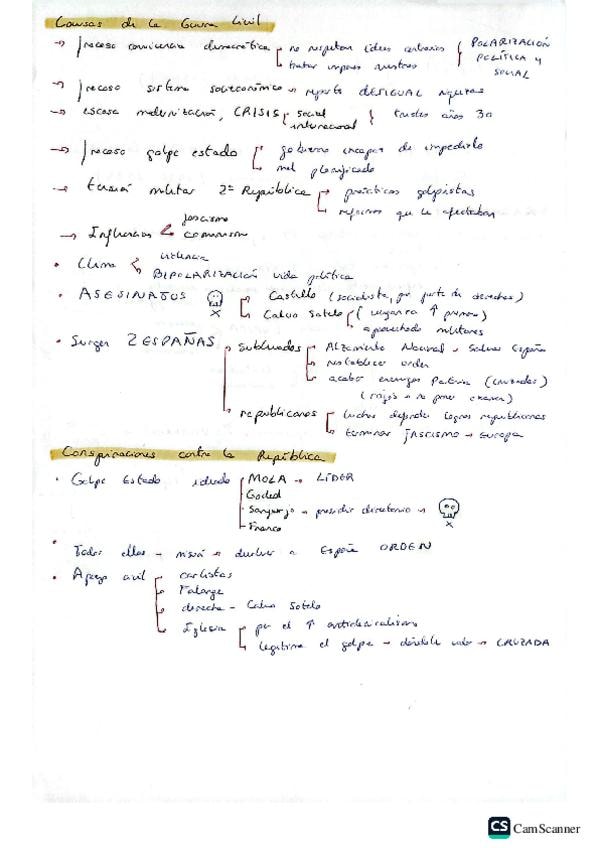 Causas de la Guerra Civil
→ fracaso convivencia democrática no respetan ideas contrarios POLARIZACIÓN
tratar imponer nuestros POLÍTICA y
SOCIAL
→ fracaso sistema socioeconómico → reparto DESIGUAL riquezas
→ escasa modernización, CRISIS social
internacional } finales años 30
→ fracaso golpe estado gobierno incapaz de impedirlo
mal planificado
→ tensión militar 2ª República prácticas golpistas
reformas que le afectaban
→ Influencias fascismo
comunismo
• Clima violencia
BIPOLARIZACIÓN vida política
• ASESINATOS Castillo (socialista, por parte de derechas)
Calvo Sotelo (venganza ↑ primero)
apuntado militares
• Surgen 2 ESPAÑAS sublevados Alzamiento Nacional → Salvar España
restablecer orden
acabar enemigos Patria (cruzados)
(rojos o no)
republicanos luchar defender logros republicanos
terminar fascismo → Europa
Conspiraciones contra la República
• Golpe Estado ideado MOLA → LÍDER
Goded
Sanjurjo → presidir directorio → x
Franco
• Todos ellos → misión → devolver a España ORDEN
• Apoyo civil carlistas
Falange
derecha - Calvo Sotelo
Iglesia por el ↑ anticlericalismo
legitima el golpe → dándole valor → CRUZADA
CS CamScanner